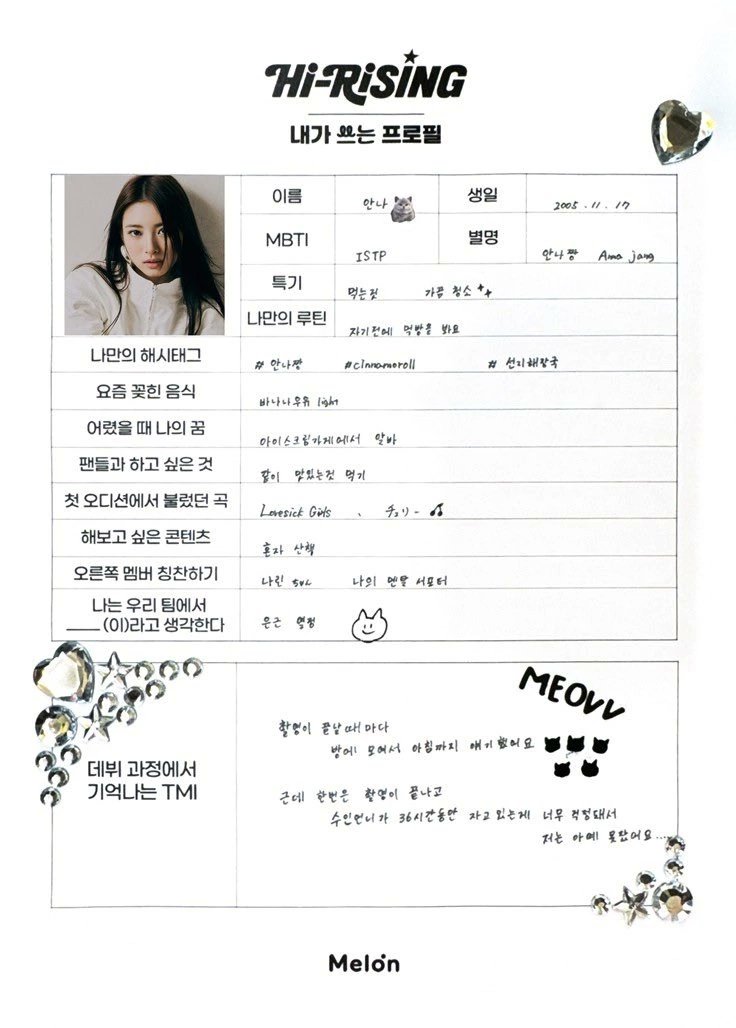 Hi-RiSiNG
내가 쓰는 프로필
이름 안나 생일 2005.11.17
MBTI ISTP 별명 안나짱 Anna jjang
특기 먹는것 가끔 청소
나만의 루틴 자기전에 먹방을 봐요
나만의 해시태그 #안나짱 #cinnamoroll #선지해장국
요즘 꽂힌 음식 바나나우유 light
어렸을 때 나의 꿈 아이스크림가게에서 알바
팬들과 하고 싶은 것 같이 맛있는것 먹기
첫 오디션에서 불렀던 곡 Lovesick Girls、チェリー
해보고 싶은 콘텐츠 혼자 산책
오른쪽 멤버 칭찬하기 나린 ちゃん 나의 멘탈 서포터
나는 우리 팀에서
____(이)라고 생각한다 은근 열정
MEOVV
데뷔 과정에서
기억나는 TMI
촬영이 끝날때마다
방에 모여서 아침까지 얘기했어요
근데 한번은 촬영이 끝나고
수인언니가 36시간동안 자고있는게 너무 걱정돼서
저는 아예 못잤어요...
Melon